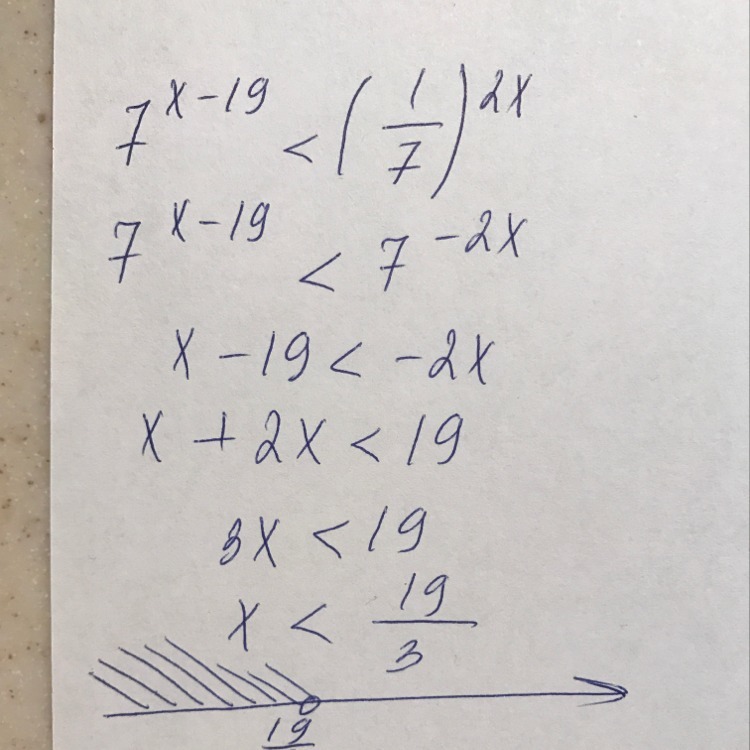 7^(x-19) < (1/7)^(2x)
7^(x-19) < 7^(-2x)
x - 19 < -2x
x + 2x < 19
3x < 19
x < 19/3
19